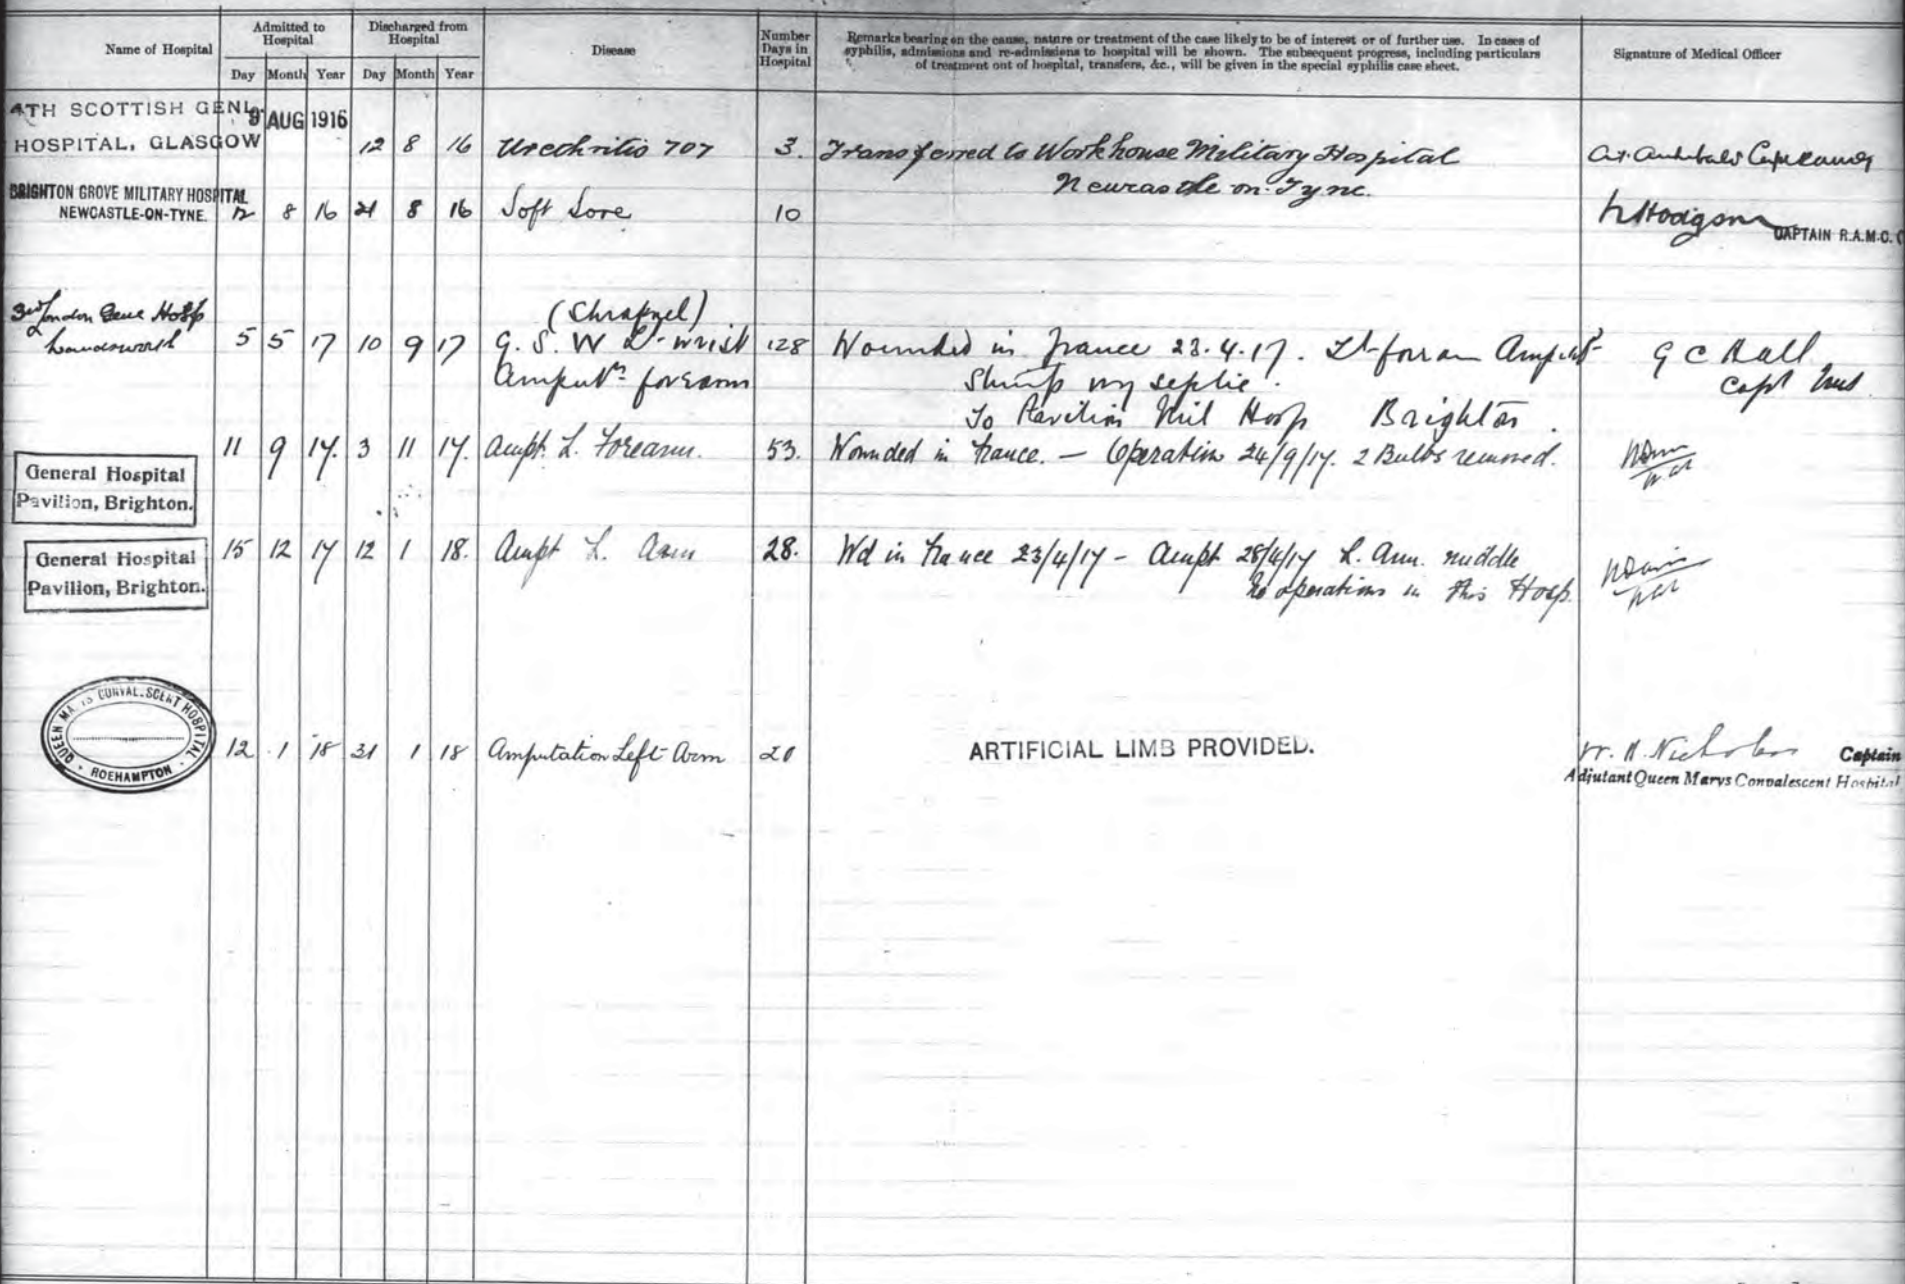 Name of Hospital
Admitted to Hospital
Discharged from Hospital
Disease
Number Days in Hospital
Remarks bearing on the cause, nature or treatment of the case likely to be of interest or of further use. In cases of
syphilis, admissions and re-admissions to hospital will be shown. The subsequent progress, including particulars
of treatment out of hospital, transfers, &c., will be given in the special syphilis case sheet.
Signature of Medical Officer
Day Month Year Day Month Year
4TH SCOTTISH GENL.
9 AUG 1916
HOSPITAL, GLASGOW 12 8 16 Urethritis 707 3. Transferred to Workhouse Military Hospital
Newcastle on Tyne.
BRIGHTON GROVE MILITARY HOSPITAL
NEWCASTLE-ON-TYNE. 12 8 16 21 8 16 Soft Sore 10 Hodgson CAPTAIN R.A.M.C.
3rd London Gene Hosp (Shrapnel)
5 5 17 10 9 17 G.S.W Lt wrist 128 Wounded in France 23.4.17. Lt forearm Amput G C Hall
Amputn forearm Stump septic. Capt
To Pavilion Mil Hosp Brighton.
11 9 17. 3 11 17. Ampt. L. Forearm. 53. Wounded in France. — Operation 24/9/17. 2 Bulbs removed.
General Hospital
Pavilion, Brighton.
15 12 17 12 1 18. Ampt L. Arm 28. Wd in France 23/4/17 - Ampt 28/4/17 L. Arm. middle
General Hospital
Pavilion, Brighton.
No operations in this Hosp.
QUEEN MARYS CONVALESCENT HOSPITAL
ROEHAMPTON
12 1 18 31 1 18 Amputation Left Arm 20 ARTIFICIAL LIMB PROVIDED. Captain
Adjutant Queen Marys Convalescent Hospital